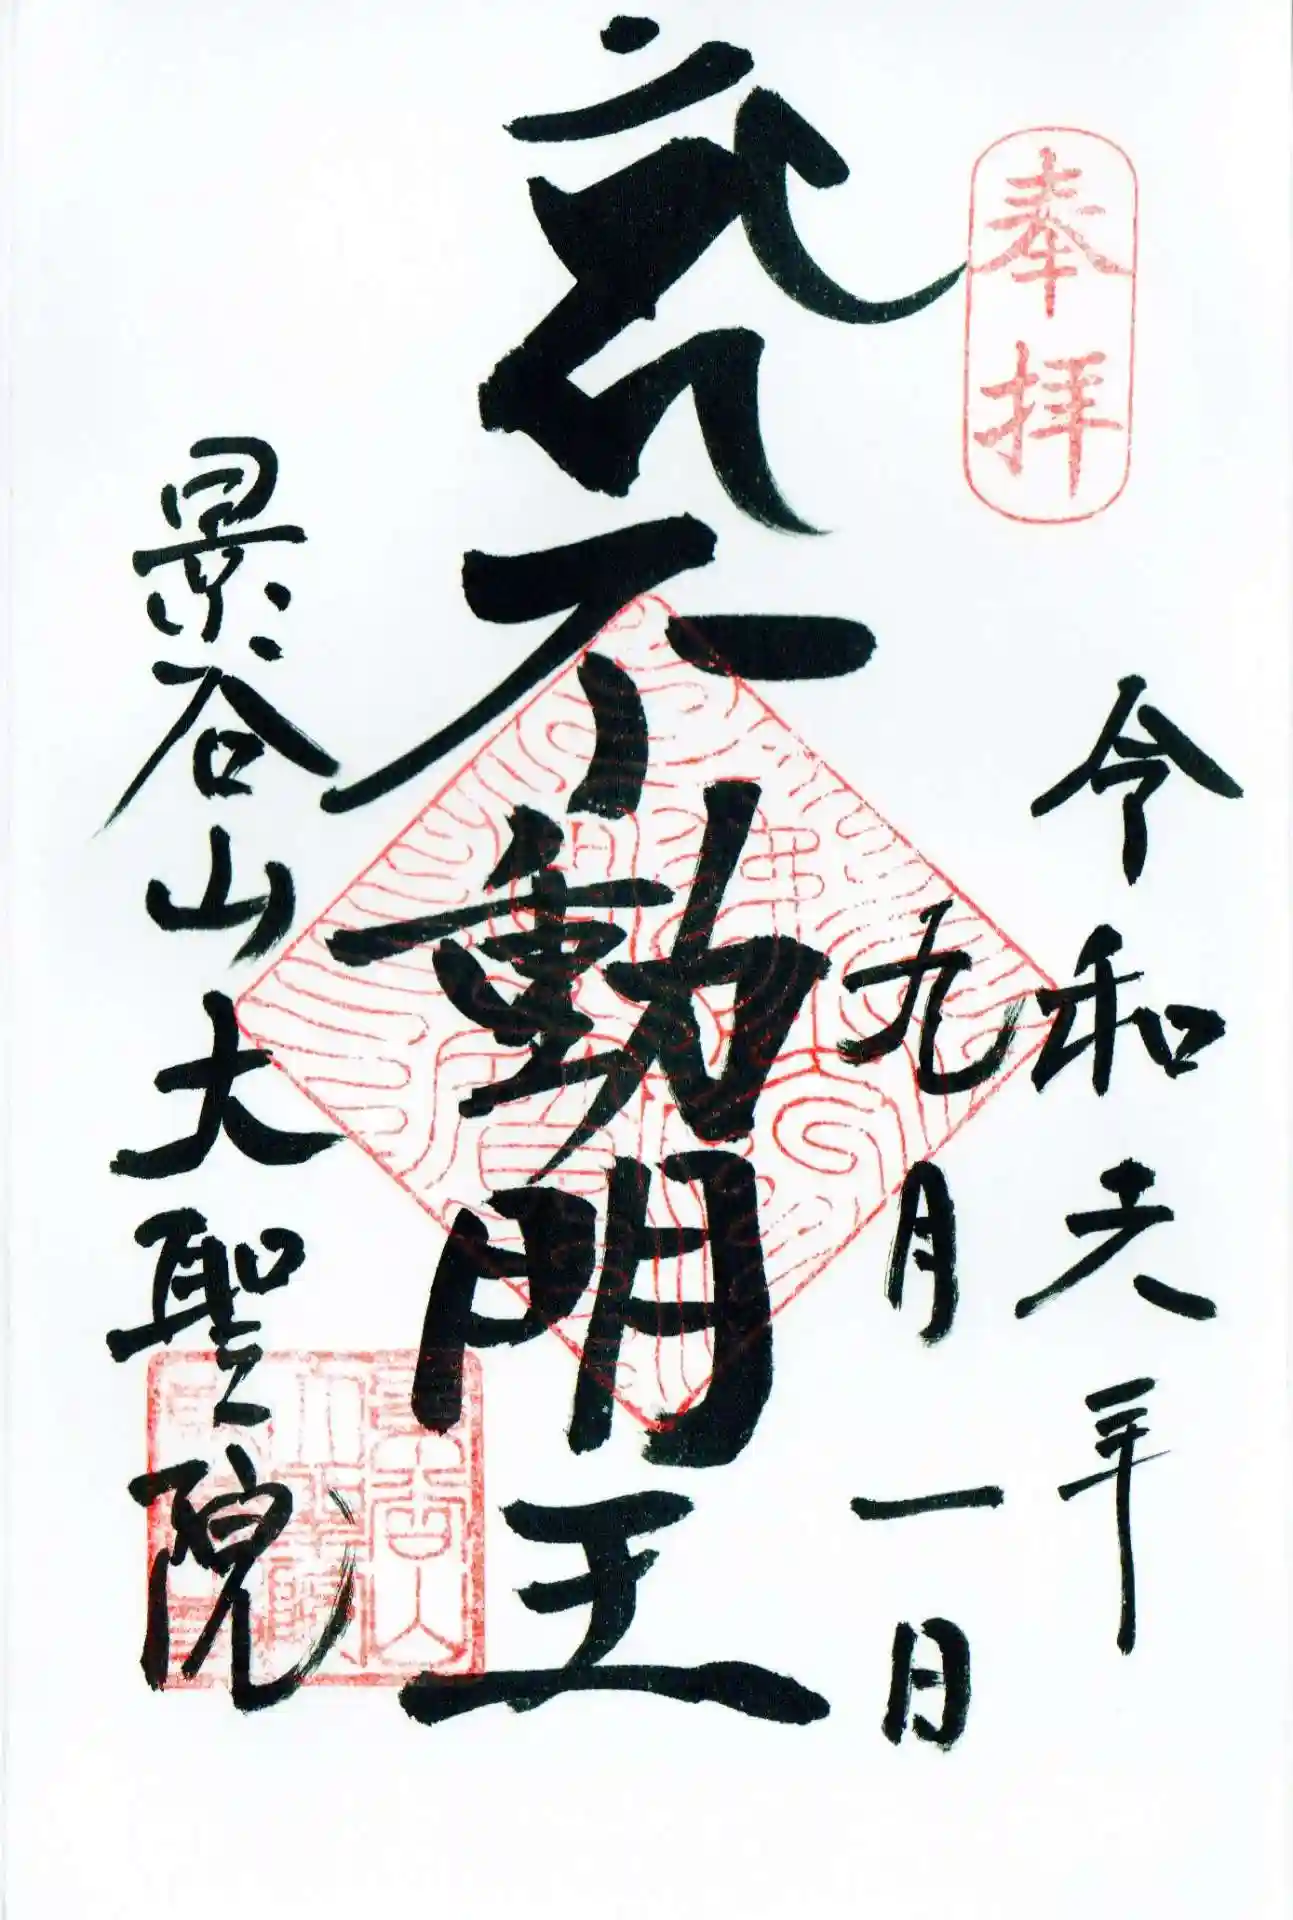 奉拝
令和六年
九月一日
不動明王
景谷山大聖院